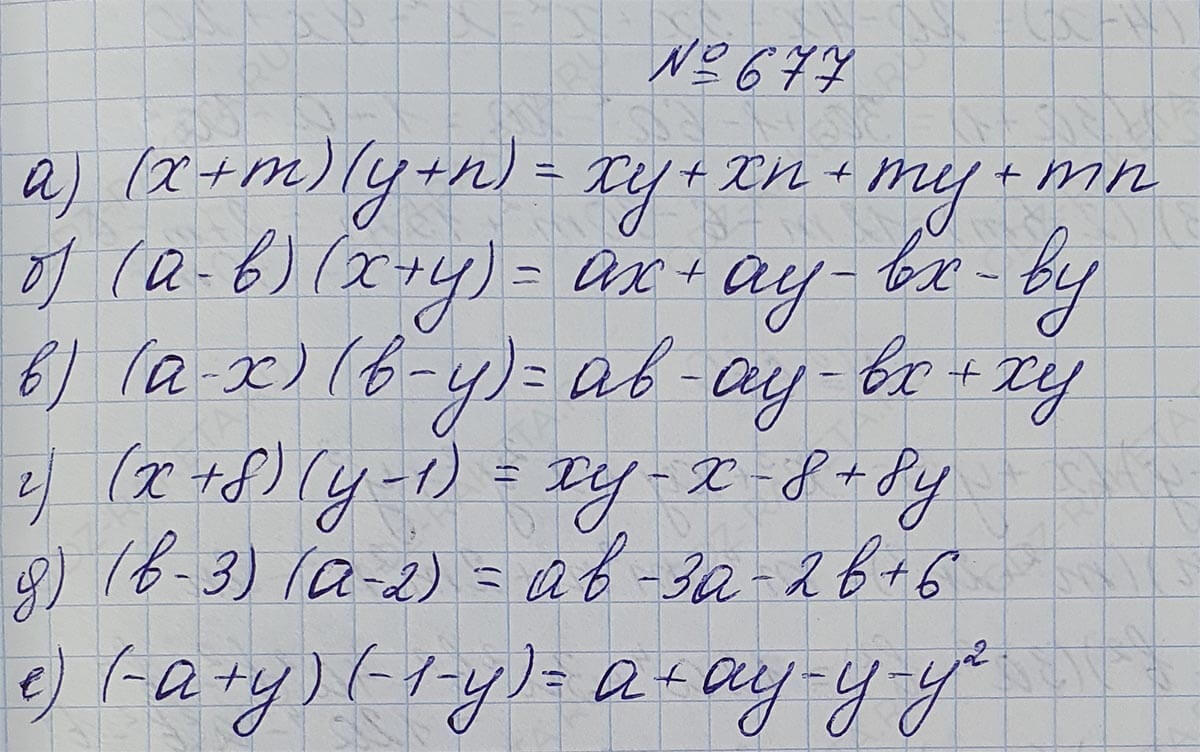 № 677
а) (x+m)(y+n) = xy + xn + my + mn
б) (a-b)(x+y) = ax + ay - bx - by
в) (a-x)(b-y) = ab - ay - bx + xy
г) (x+8)(y-1) = xy - x - 8 + 8y
д) (b-3)(a-2) = ab - 3a - 2b + 6
е) (-a+y)(-1-y) = a + ay - y - y²